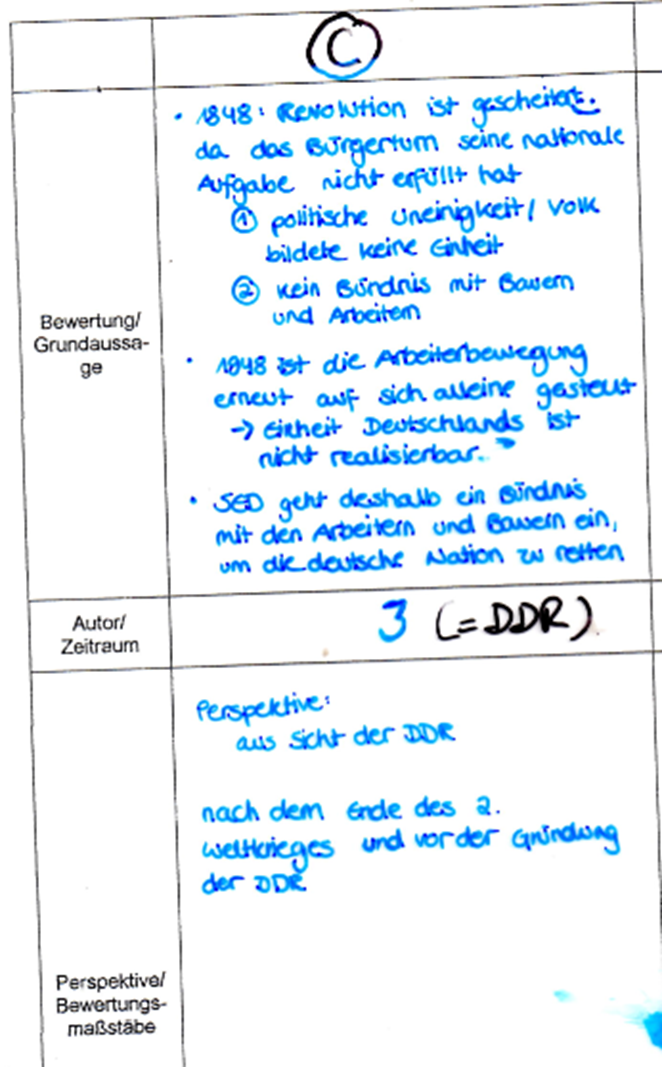 C
• 1848: Revolution ist gescheitert.
da das Bürgertum seine nationale
Aufgabe nicht erfüllt hat
① politische Uneinigkeit/ Volk
bildete keine Einheit
② kein Bündnis mit Bauern
und Arbeitern
Bewertung/
Grundaussa-
ge
• 1848 ist die Arbeiterbewegung
erneut auf sich alleine gestellt
→ Einheit Deutschlands ist
nicht realisierbar.
• SED geht deshalb ein Bündnis
mit den Arbeitern und Bauern ein,
um die deutsche Nation zu retten
Autor/
Zeitraum
3 (=DDR)
Perspektive:
aus Sicht der DDR
nach dem Ende des 2.
Weltkrieges und vor der Gründung
der DDR
Perspektive/
Bewertungs-
maßstäbe